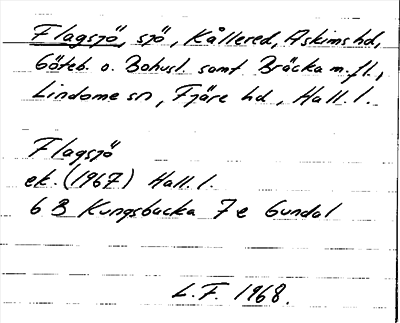 Flagsjö, sjö, Kållered, Askims hd,
Göteb. o. Bohusl. samt Bräcka m.fl.,
Lindome sn, Fjäre hd, Hall. l.
Flagsjö
ek. (1967) Hall. l.
6 B Kungsbacka 7 e Gundal
L.F. 1968.